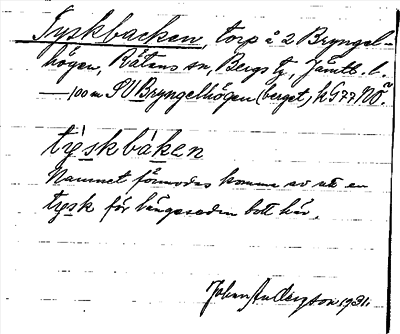 Tyskbacken, torp å 2 Bryngel-
högen, Rätans sn, Bergs tg, Jämtl. l.
100 m SV Bryngelhögen (berget, k G77 NO.
týskbàken
Namnet förmodas komma av att en
tysk för länge sedan bott här.
Johan Anderzson 1931.